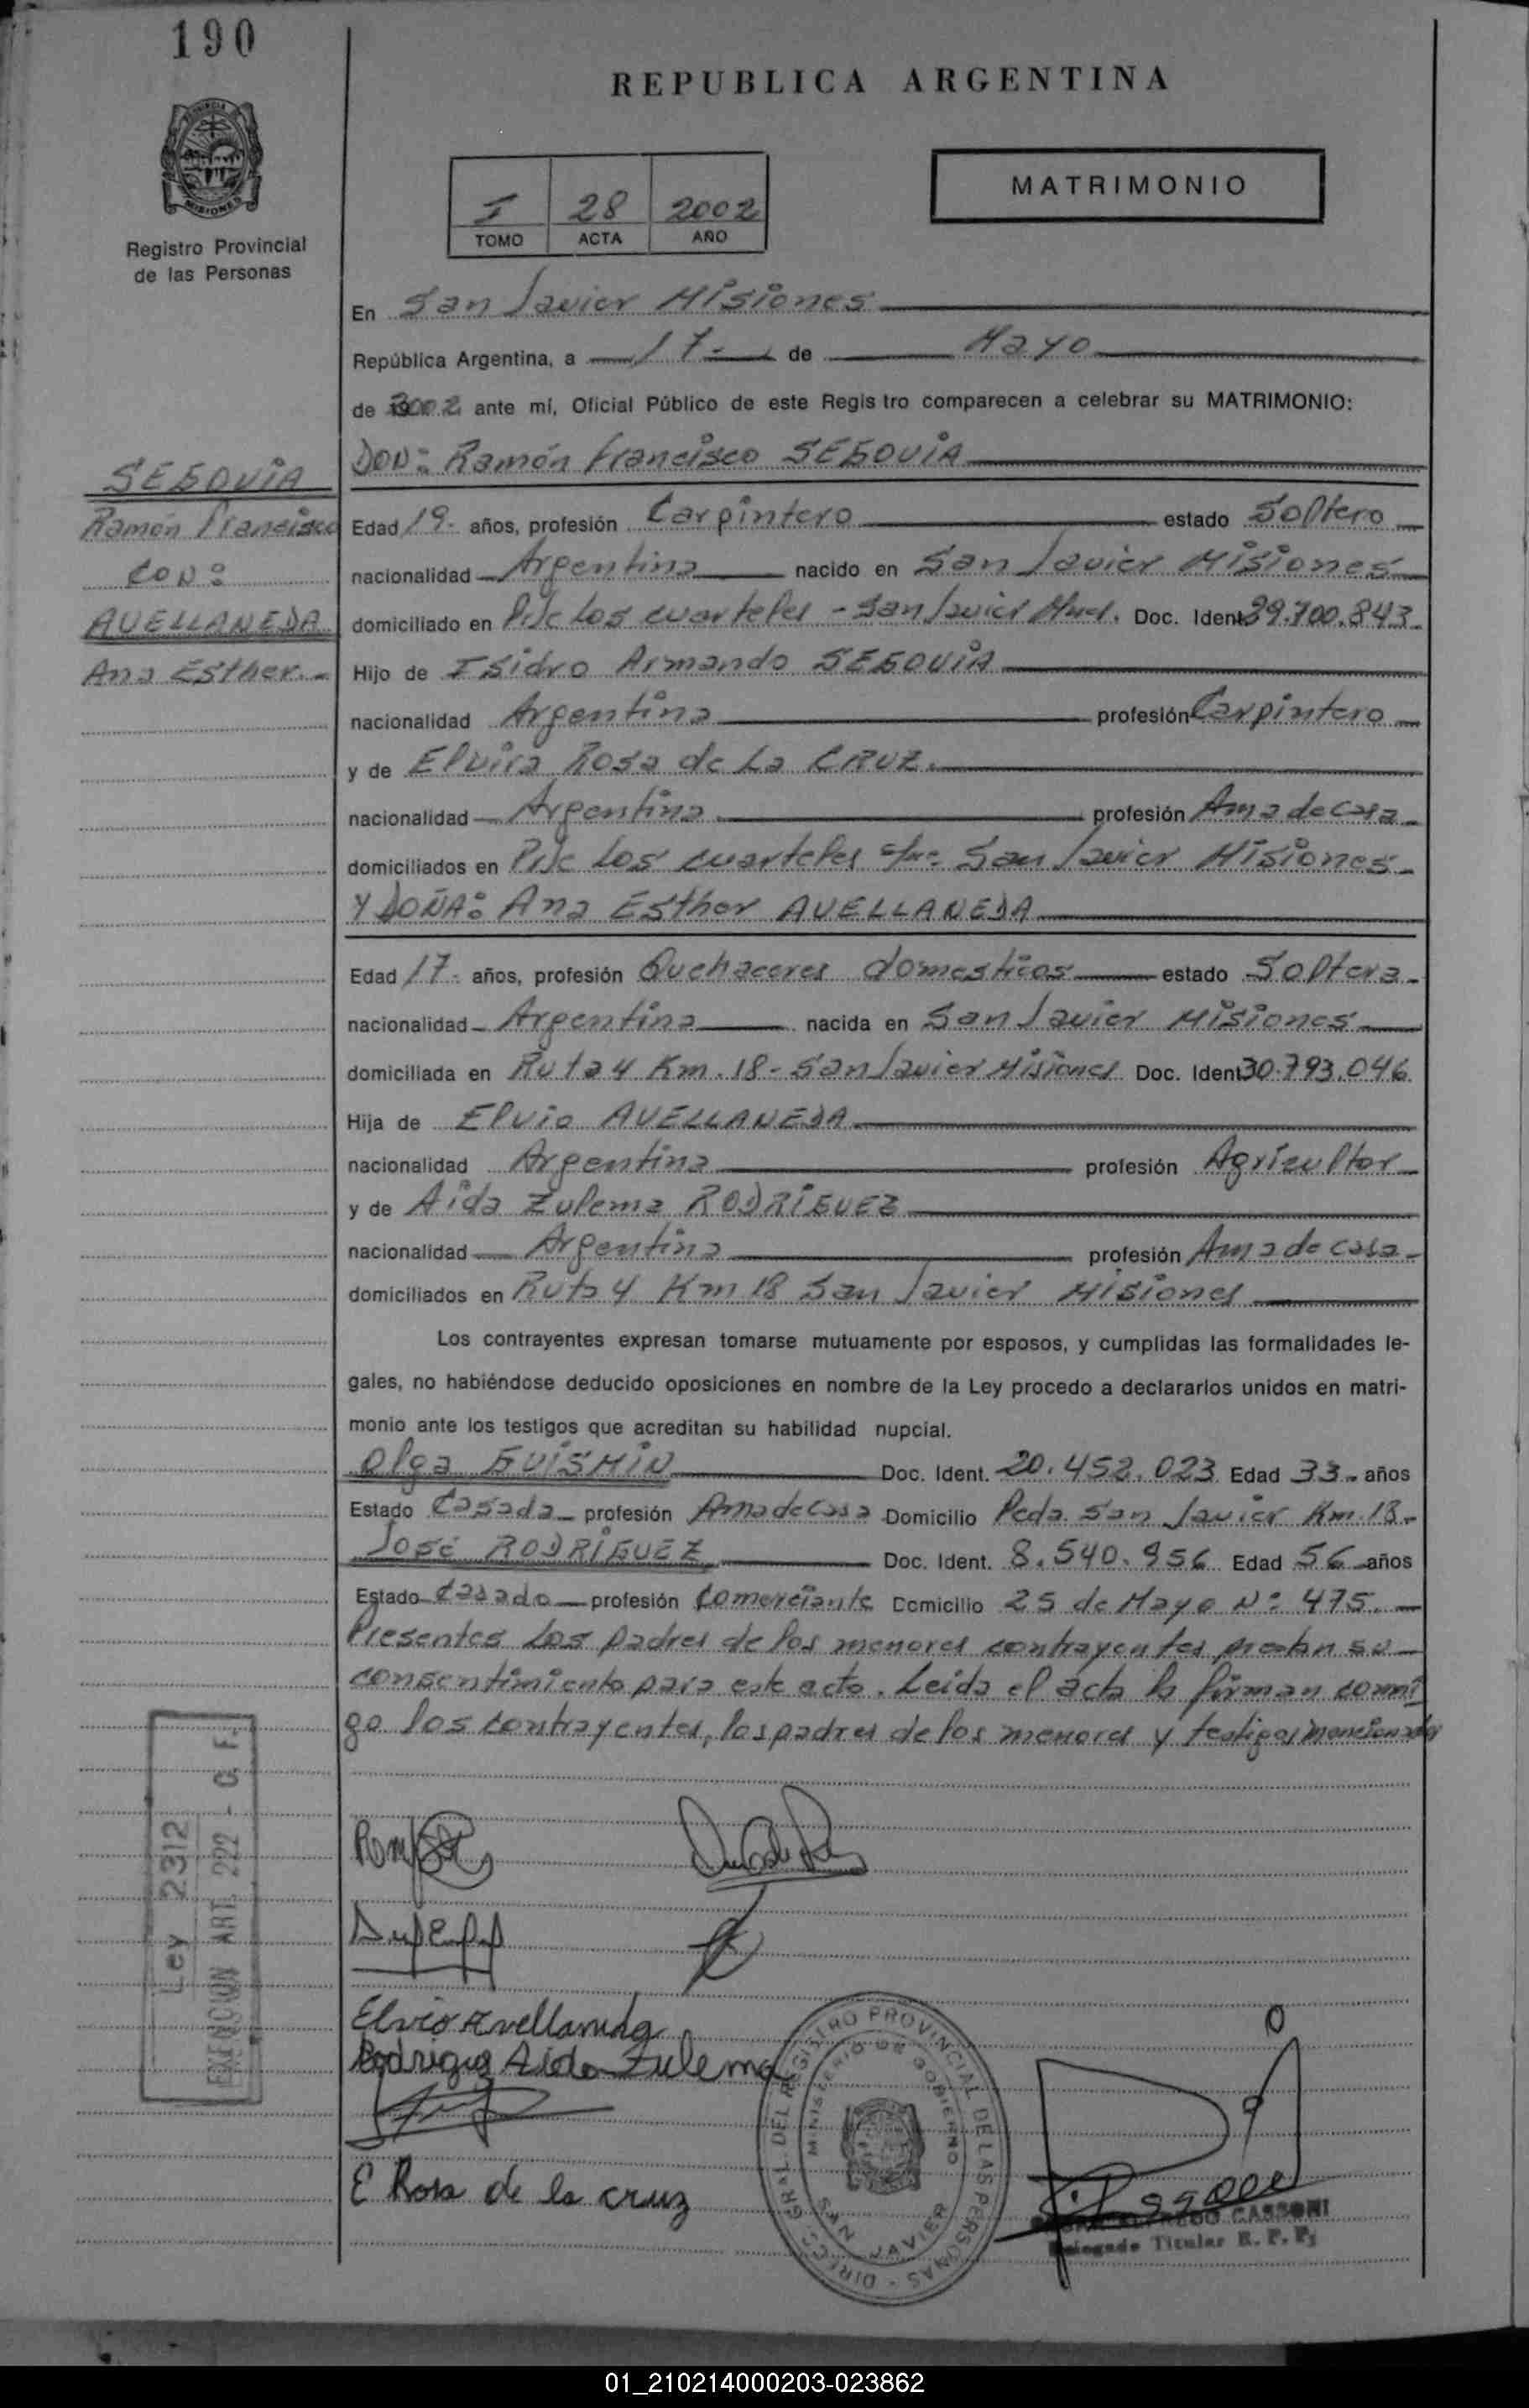 190
REPUBLICA ARGENTINA
MISIONES
Registro Provincial
de las Personas
I 28 2002
TOMO ACTA AÑO
MATRIMONIO
En San Javier Misiones
República Argentina, a 17 de Mayo
de 2002 ante mí, Oficial Público de este Registro comparecen a celebrar su MATRIMONIO:
DON: Ramón Francisco SEGOVIA
SEGOVIA
Ramón Francisco
CON:
AVELLANEDA
Ana Esther.-
Edad 19- años, profesión Carpintero estado Soltero
nacionalidad Argentina nacido en San Javier Misiones
domiciliado en Pje Los cuarteles - San Javier Mnes. Doc. Ident 29.700.843
Hijo de Isidro Armando SEGOVIA
nacionalidad Argentina profesión Carpintero
y de Elvira Rosa de La CRUZ.
nacionalidad Argentina profesión Ama de casa
domiciliados en Pje Los cuarteles San Javier Misiones
Y DOÑA: Ana Esther AVELLANEDA
Edad 17- años, profesión Quehaceres domesticos estado Soltera
nacionalidad Argentina nacida en San Javier Misiones
domiciliada en Ruta 4 Km. 18- San Javier Misiones Doc. Ident 30.793.046
Hija de Elvio AVELLANEDA
nacionalidad Argentina profesión Agricultor
y de Aida Zulema RODRIGUEZ
nacionalidad Argentina profesión Ama de casa
domiciliados en Ruta 4 Km 18 San Javier Misiones
Los contrayentes expresan tomarse mutuamente por esposos, y cumplidas las formalidades le-
gales, no habiéndose deducido oposiciones en nombre de la Ley procedo a declararlos unidos en matri-
monio ante los testigos que acreditan su habilidad nupcial.
Olga GUISMIN Doc. Ident. 20.452.023 Edad 33 años
Estado Casada profesión Ama de casa Domicilio Pcda. San Javier Km. 18-
José RODRIGUEZ Doc. Ident. 8.540.956 Edad 56 años
Estado Casado profesión Comerciante Domicilio 25 de Mayo Nº 475.
Presentes los padres de los menores contrayentes prestan su
consentimiento para este acto. Leida el acta la firman conmi
go los contrayentes, los padres de los menores y testigos mencionados
Ley 2312
EXENCION ART. 222 - C. F.
Elvio Avellaneda
Rodriguez Aida Zulema
E Rosa de la cruz
DIRECC. GRAL. DEL REGISTRO PROVINCIAL DE LAS PERSONAS
MINISTERIO DE GOBIERNO
SAN JAVIER
ALFREDO CASSONI
Delegado Titular R. P. P.
01_210214000203-023862